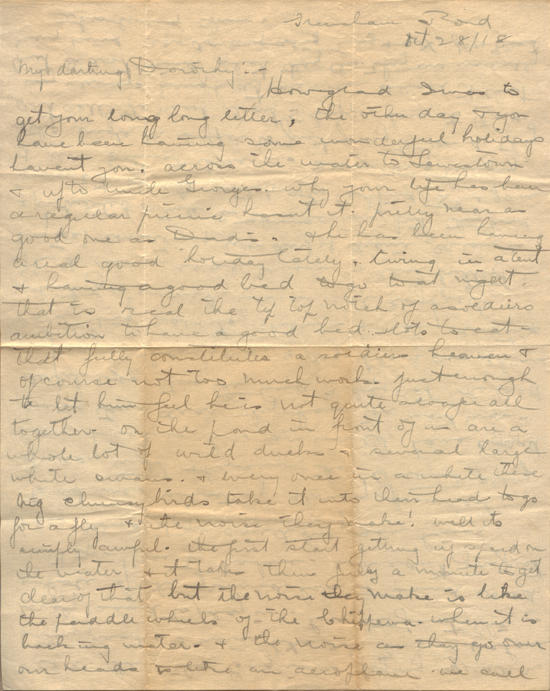 Oct 28/18
My darling Dorothy:-
How glad I was to
get your long long letter, the other day & you
have been having some wonderful holidays
havent you. across the water to Lewistown
& up to Uncle Georges. why your life has been
a regular picnic hasn't it. pretty near as
good one as Dads. & he has been having
a real good holiday lately, living in a tent
& having a good bed to go to at night.
that is real the tip top notch of a soldiers
ambition to have a good bed. lots to eat
that fully constitutes a soldiers heaven &
of course not too much work. just enough
to let him feel he is not quite a loafer all
together. on the pond in front of us are a
whole lot of wild ducks & several large
white swans. & every once in a while these
big clumsy birds take it into their head to go
for a fly & the noise they make! well its
simply awful. the first start getting up speed on
the water & it takes them a minute to get
clear of that but the noise they make is like
the paddle wheels of the Chippewa when it is
backing water. & the noise as they go over
our heads is like an aeroplane. we call